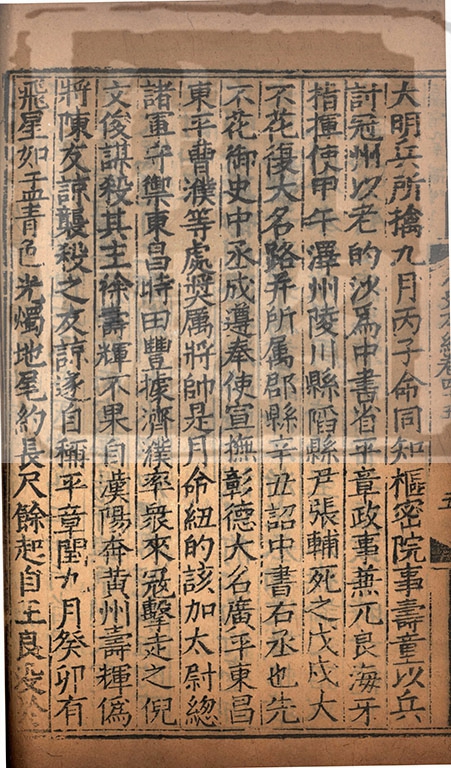 大明兵所擒九月丙子命同知樞密院事壽童以兵
討冠州以老的沙爲中書省平章政事兼兀良海牙
指揮使甲午澤州陵川縣陷縣尹張輔死之戊戌大
不花復大名路并所属郡縣辛丑詔中書右丞也先
不花御史中丞成遵奉使宣撫彰德大名廣平東昌
東平曹濮等處奬厲將帥是月命紐的該加太尉總
諸軍守禦東昌時田豐據濟濮率衆來冦擊走之倪
文俊謀殺其主徐壽輝不果自漢陽奔黃州壽輝僞
將陳友諒襲殺之友諒遂自稱平章閏九月癸卯有
飛星如盂青色光燭地尾約長尺餘起自王良没於
五